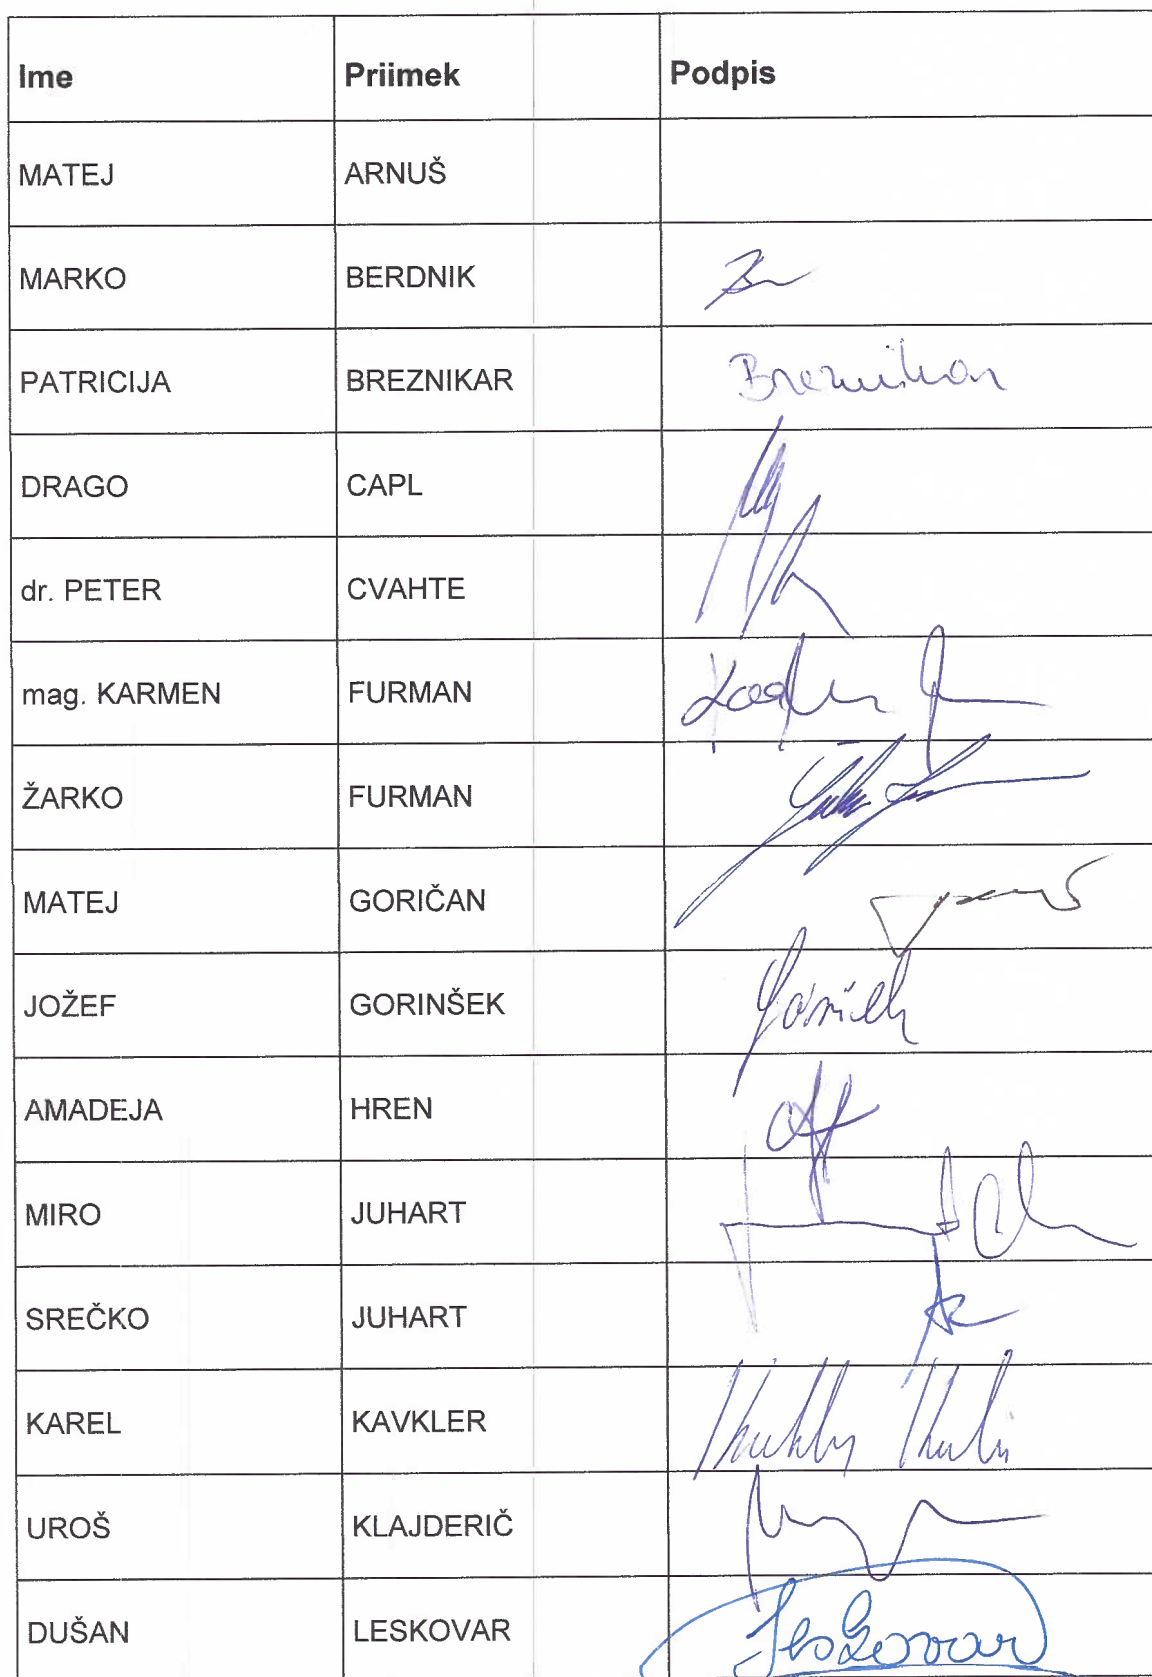 Ime Priimek Podpis
MATEJ ARNUŠ
MARKO BERDNIK
PATRICIJA BREZNIKAR Breznikar
DRAGO CAPL
dr. PETER CVAHTE
mag. KARMEN FURMAN
ŽARKO FURMAN
MATEJ GORIČAN
JOŽEF GORINŠEK
AMADEJA HREN
MIRO JUHART
SREČKO JUHART
KAREL KAVKLER
UROŠ KLAJDERIČ
DUŠAN LESKOVAR Leskovar